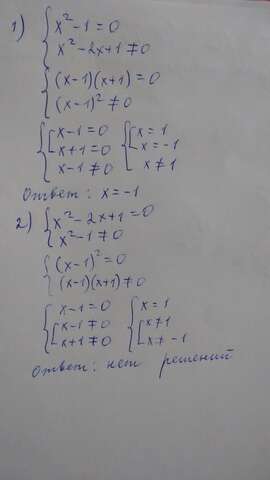 1) { x² - 1 = 0
x² - 2x + 1 ≠ 0
{ (x-1)(x+1) = 0
(x-1)² ≠ 0
{ [ x-1 = 0 { [ x = 1
x+1 = 0 x = -1
x-1 ≠ 0 x ≠ 1
Ответ: x = -1
2) { x² - 2x + 1 = 0
x² - 1 ≠ 0
{ (x-1)² = 0
(x-1)(x+1) ≠ 0
{ x-1 = 0 { x = 1
[ x-1 ≠ 0 [ x ≠ 1
x+1 ≠ 0 x ≠ -1
Ответ: нет решений